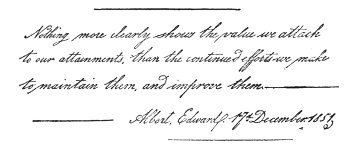 Nothing more clearly shows the value we attach
to our attainments, than the continued efforts we make
to maintain them, and improve them.
Albert. Edward. 17th December. 1851